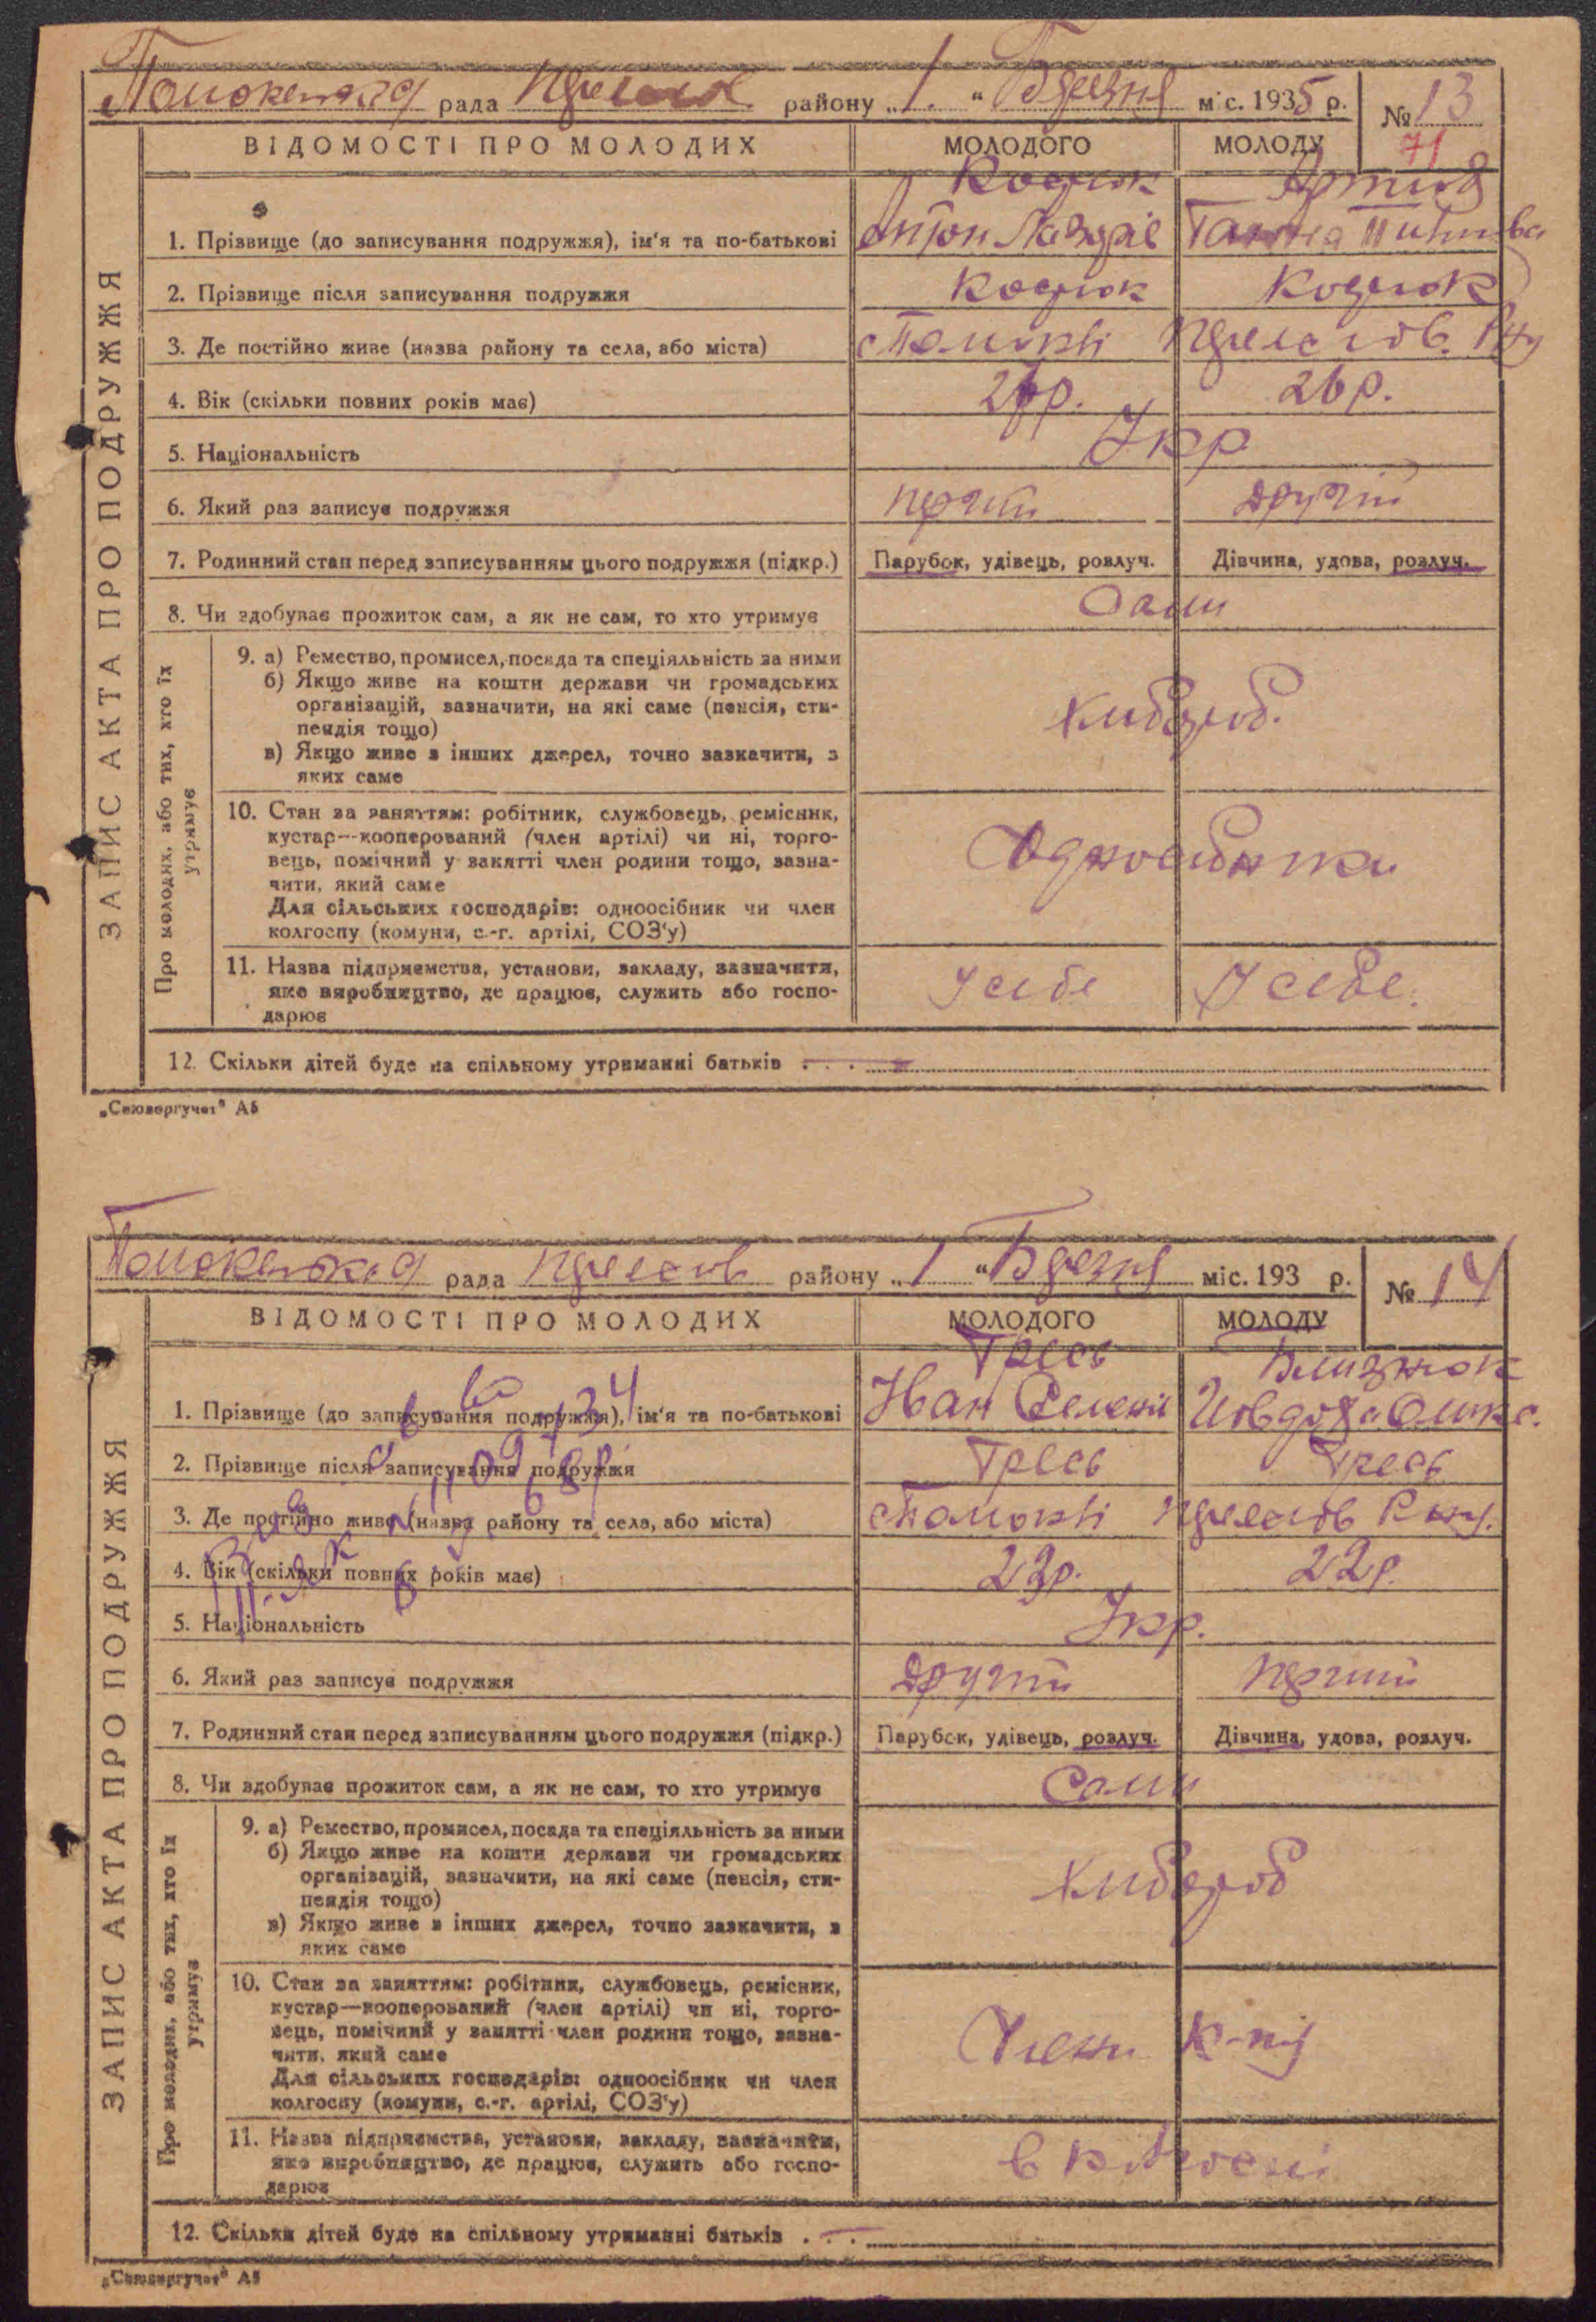 рада района „ 1. “ Березня міс. 1935 р. № 13
71
ВІДОМОСТІ ПРО МОЛОДИХ МОЛОДОГО МОЛОДУ
ЗАПИС АКТА ПРО ПОДРУЖЖЯ
1. Прізвище (до записування подружжя), ім'я та по-батькові Антон Лазорів Ганна
2. Прізвище після записування подружжя
3. Де постійно живе (назва району та села, або міста)
4. Вік (скільки повних років має) 26 р.
5. Національність Укр
6. Який раз записує подружжя перший другий
7. Родинний стан перед записуванням цього подружжя (підкр.) Парубок, удівець, розлуч. Дівчина, удова, розлуч.
8. Чи здобуває прожиток сам, а як не сам, то хто утримує Сами
Про молодих, або тих, хто їх утримує
9. а) Ремество, промисел, посада та спеціяльність за ними
б) Якщо живе на кошти держави чи громадських
організацій, зазначити, на які саме (пенсія, сти-
пендія тощо)
в) Якщо живе з інших джерел, точно зазначити, з
яких саме
хлібороб.
10. Стан за заняттям: робітник, службовець, ремісник,
кустар—кооперований (член артілі) чи ні, торго-
вець, помічний у занятті член родини тощо, зазна-
чити, який саме
Для сільських господарів: одноосібник чи член
колгоспу (комуни, с.-г. артілі, СОЗ'у)
Одноосібники
11. Назва підприємства, установи, закладу, зазначити,
яке виробництво, де працює, служить або госпо-
дарює
У себе У себе.
12. Скільки дітей буде на спільному утриманні батьків . . . —
„Союзоргучет" А5
рада району „ 1 “ Березня міс. 193 р. № 14
ВІДОМОСТІ ПРО МОЛОДИХ МОЛОДОГО МОЛОДУ
ЗАПИС АКТА ПРО ПОДРУЖЖЯ
Тресь Близнюк
1. Прізвище (до записування подружжя), ім'я та по-батькові Іван Явдоха
2. Прізвище після записування подружжя Тресь Тресь
3. Де постійно живе (назва району та села, або міста)
4. Вік (скільки повних років має) 23 р. 22 р.
5. Національність Укр.
6. Який раз записує подружжя другий перший
7. Родинний стан перед записуванням цього подружжя (підкр.) Парубок, удівець, розлуч. Дівчина, удова, розлуч.
8. Чи здобуває прожиток сам, а як не сам, то хто утримує Сами
Про молодих, або тих, хто їх утримує
9. а) Ремество, промисел, посада та спеціяльність за ними
б) Якщо живе на кошти держави чи громадських
організацій, зазначити, на які саме (пенсія, сти-
пендія тощо)
в) Якщо живе з інших джерел, точно зазначити, з
яких саме
хлібороб
10. Стан за заняттям: робітник, службовець, ремісник,
кустар—кооперований (член артілі) чи ні, торго-
вець, помічний у занятті член родини тощо, зазна-
чити, який саме
Для сільських господарів: одноосібник чи член
колгоспу (комуни, с.-г. артілі, СОЗ'у)
Члени
11. Назва підприємства, установи, закладу, зазначити,
яке виробництво, де працює, служить або госпо-
дарює
в колгоспі
12. Скільки дітей буде на спільному утриманні батьків . . .
„Союзоргучет" А5